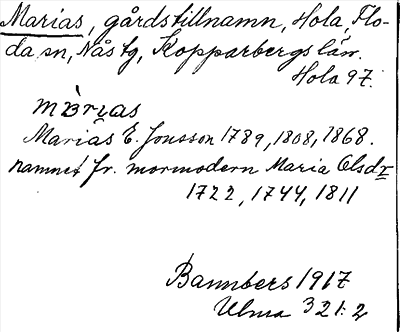 Marias, gårdstillnamn, Hola, Flo-
da sn, Nås tg, Kopparbergs län.
Hola 97.
màrias
Marias E. Jonsson 1789, 1808, 1868.
namnet fr. mormodern Maria Olsdr
1722, 1744, 1811
Bannbers 1917
Ulma 321:2